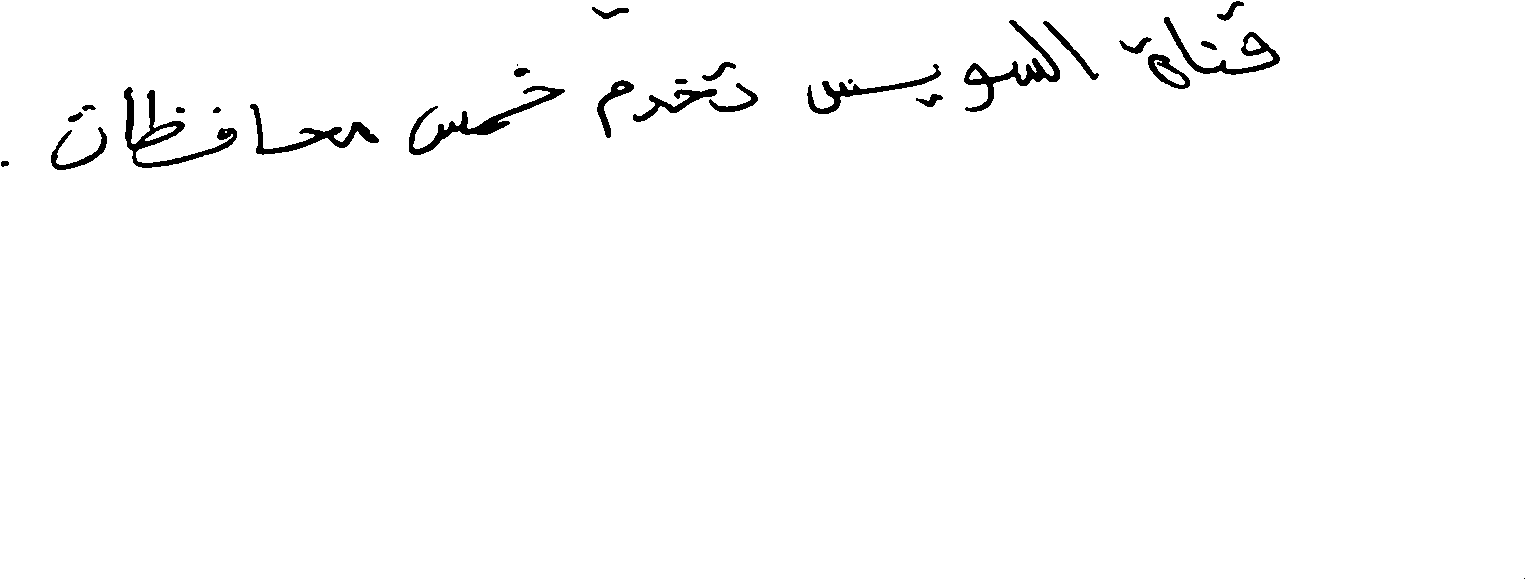 قناة السويس تخدم خمس محافظات .